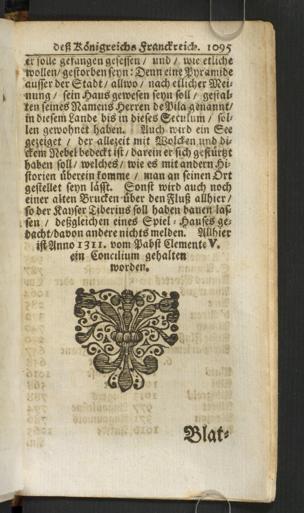 deß Königreichs Franckreich. 1095
er solle gefangen gesessen / und / wie etliche
wollen / gestorben seyn: Denn eine Pyramide
ausser der Stadt / allwo / nach etlicher Mei-
nung / sein Haus gewesen seyn soll / gestal-
ten seines Namens Herren de Pila genannt /
in diesem Lande bis in dieses Seculum / sol-
len gewohnet haben. Auch wird ein See
gezeiget / der allezeit mit Wolcken und di-
ckem Nebel bedeckt ist / darein er sich gestürtzt
haben soll / welches / wie es mit andern Hi-
storien überein komme / man an seinen Ort
gestellet seyn lässt. Sonst wird auch noch
einer alten Brucken über den Fluß allhier /
so der Kayser Tiberius soll haben bauen las-
sen / deßgleichen eines Spiel-Hauses ge-
dacht / davon andere nichts melden. Allhier
ist Anno 1311. vom Pabst Clemente V.
ein Concilium gehalten
worden.
Blat-